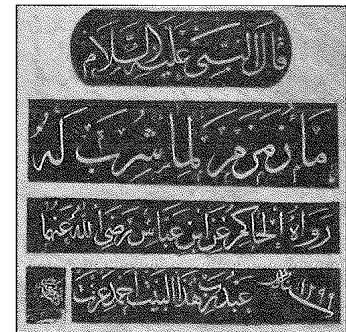 قال النبي عليه السلام
ماء زمزم لما شرب له
رواه الحاكم عن ابن عباس رضي الله عنهما
عبد رب هذا البيت احمد عزت ١٢٩٩